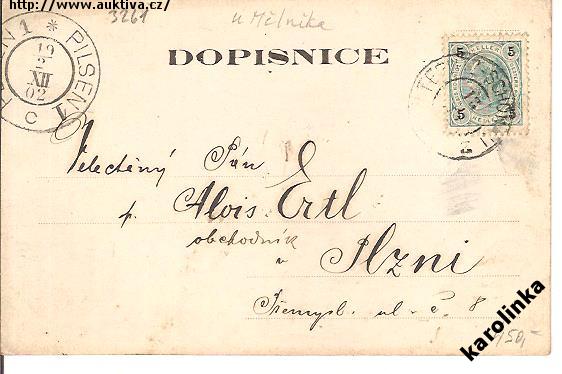 http://www.auktiva.cz/
3261
u Mělníka
DOPISNICE
PILSEN 1 * PILSEN 1
19
XII
02
C
5 5
5 5
Velectěný Pán
p. Alois Ertl
obchodník
v Plzni
Přemysl. ul. č. 8
karolinka
150,-